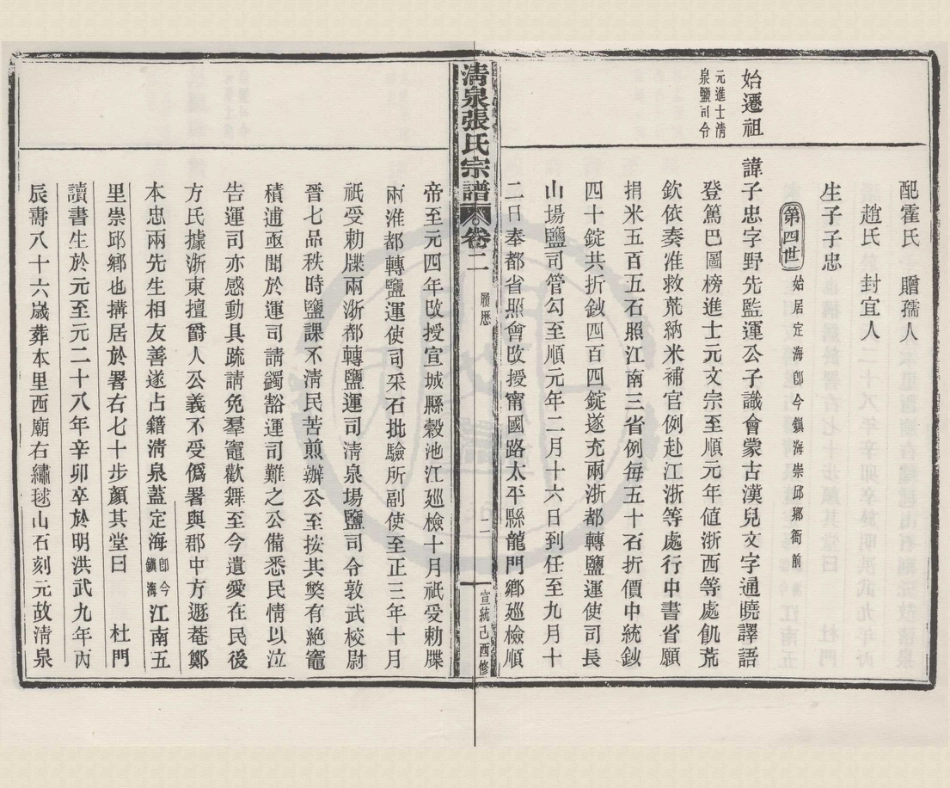 配霍氏　贈孺人
趙氏　封宜人
生子子忠
第四世　始居定海即今鎮海崇邱鄉衙前
始遷祖
元進士清
泉鹽司令
諱子忠字野先監運公子識會蒙古漢兒文字通曉譯語
登篤巴圖榜進士元文宗至順元年値浙西等處飢荒
欽依奏准救荒納米補官例赴江浙等處行中書省願
捐米五百五石照江南三省例每五十石折價中統鈔
四十錠共折鈔四百四錠遂充兩浙都轉鹽運使司長
山塲鹽司管勾至順元年二月十六日到任至九月十
二日奉都省照會改授甯國路太平縣龍門鄉廵檢順
清泉張氏宗譜　卷二　履歷　二　宣統己酉修
帝至元四年改授宣城縣穀池江廵檢十月祇受勅牒
兩淮都轉鹽運使司采石批驗所副使至正三年十月
祇受勅牒兩浙都轉鹽運司淸泉場鹽司令敦武校尉
晉七品秩時鹽課不淸民苦煎辦公至按其獘有絶竈
積逋亟聞於運司請蠲豁運司難之公備悉民情以泣
告運司亦感動具疏請免羣竈歡舞至今遺愛在民後
方氏據浙東擅爵人公義不受僞署與郡中方遯菴鄭
本忠兩先生相友善遂占籍淸泉蓋定海即今鎮海江南五
里崇邱鄉也搆居於署右七十步顏其堂曰　杜門
讀書生於元至元二十八年辛卯卒於明洪武九年丙
辰壽八十六歲葬本里西廟右繡毬山石刻元故淸泉